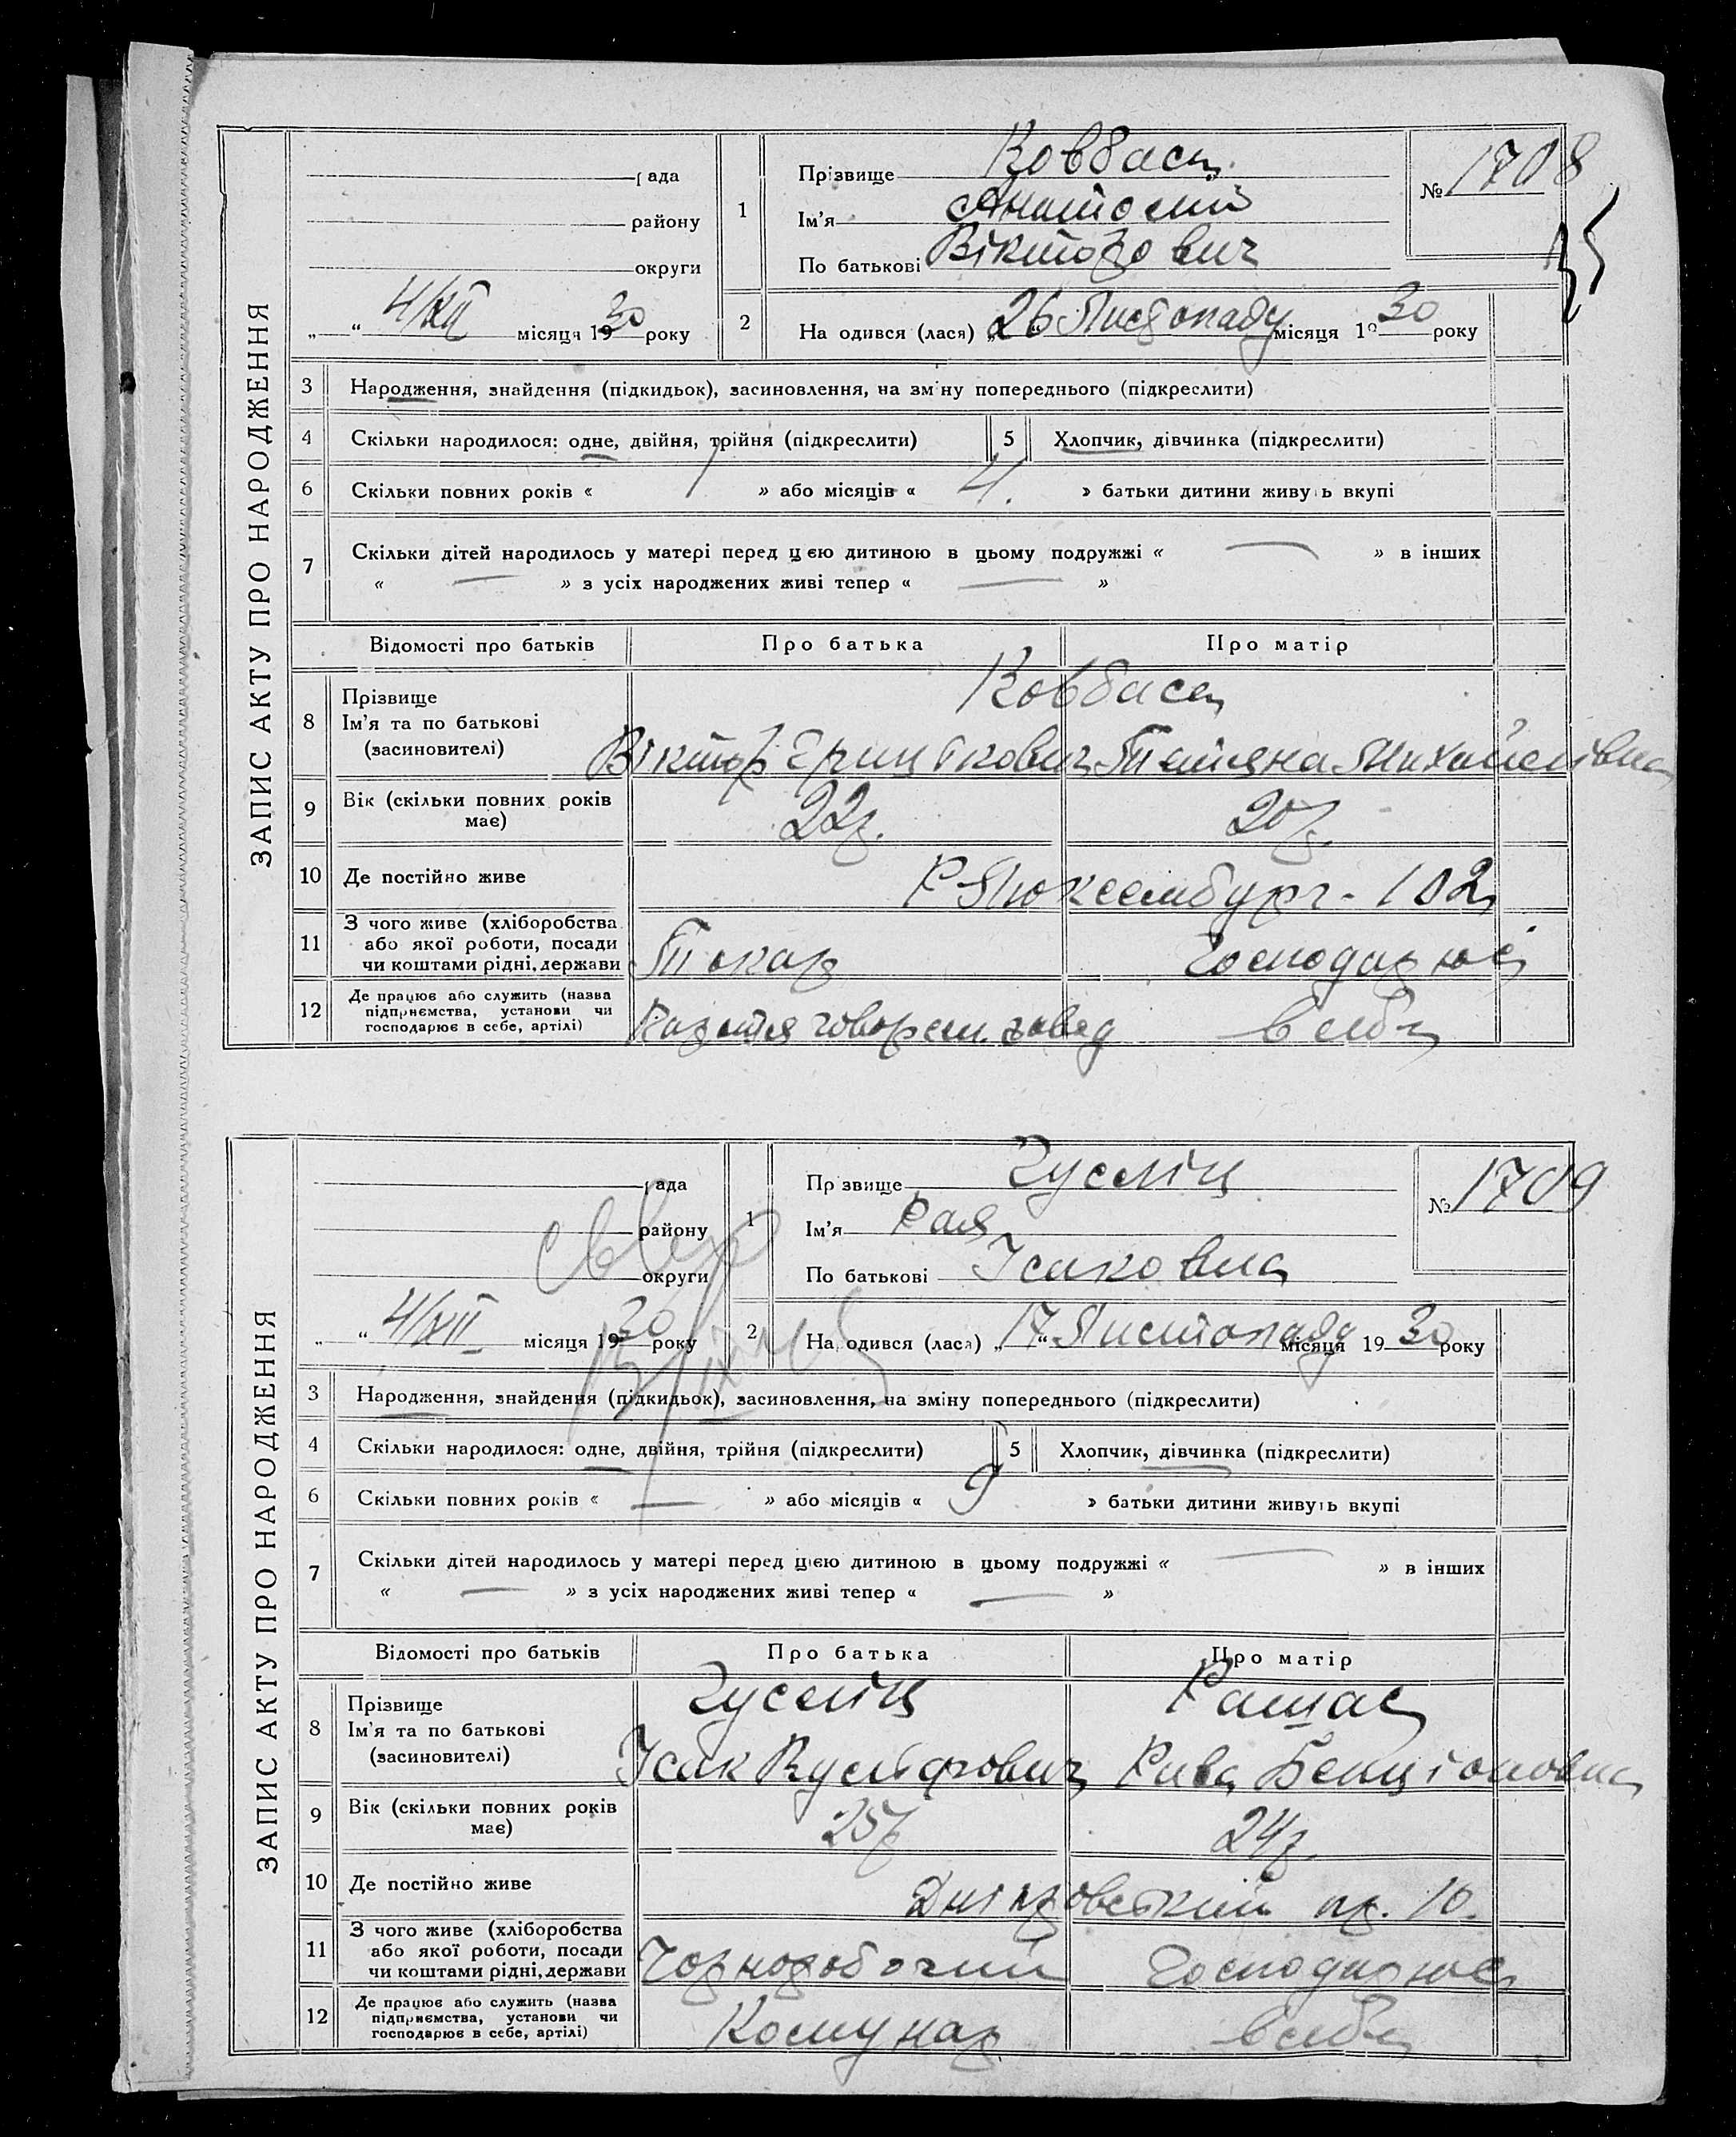 ЗАПИС АКТУ ПРО НАРОДЖЕННЯ
рада
району
округи
„ “ 4/XII місяця 1930 року
1
Прізвище Ковбаса
Ім’я Анатолий
По батькові Вікторович
№ 1708
35
2
На одився (лася) „26“ Листопаду місяця 1930 року
3 Народження, знайдення (підкидьок), засиновлення, на зміну попереднього (підкреслити)
4 Скільки народилося: одне, двійня, трійня (підкреслити)
5 Хлопчик, дівчинка (підкреслити)
6 Скільки повних років « 1 » або місяців « 4. » батьки дитини живуть вкупі
7 Скільки дітей народилось у матері перед цією дитиною в цьому подружжі « — » в інших
« — » з усіх народжених живі тепер « — »
Відомості про батьків Про батька Про матір
8 Прізвище
Ім’я та по батькові
(засиновителі)
Ковбаса
Віктор Тетяна Михайлівна
9 Вік (скільки повних років має) 22р. 20р.
10 Де постійно живе Р-Люксембург - 102
11 З чого живе (хліборобства або якої роботи, посади чи коштами рідні, держави Токар Господарює
12 Де працює або служить (назва підприємства, установи чи господарює в себе, артілі) завод в себе
ЗАПИС АКТУ ПРО НАРОДЖЕННЯ
рада
району
округи
„ “ 4/XII місяця 1930 року
1
Прізвище Гусліц
Ім’я Рая
По батькові Ісаковна
№ 1709
2
На одився (лася) „17“ Листопаду місяця 1930 року
3 Народження, знайдення (підкидьок), засиновлення, на зміну попереднього (підкреслити)
4 Скільки народилося: одне, двійня, трійня (підкреслити)
5 Хлопчик, дівчинка (підкреслити)
6 Скільки повних років « — » або місяців « 9 » батьки дитини живуть вкупі
7 Скільки дітей народилось у матері перед цією дитиною в цьому подружжі « — » в інших
« — » з усіх народжених живі тепер « — »
Відомості про батьків Про батька Про матір
8 Прізвище
Ім’я та по батькові
(засиновителі)
Гусліц
Ісак Рива Бенціоновна
9 Вік (скільки повних років має) 25р 24р.
10 Де постійно живе Дніпровський пр. 10.
11 З чого живе (хліборобства або якої роботи, посади чи коштами рідні, держави Чорноробочий Господарює
12 Де працює або служить (назва підприємства, установи чи господарює в себе, артілі) Комунар в себе